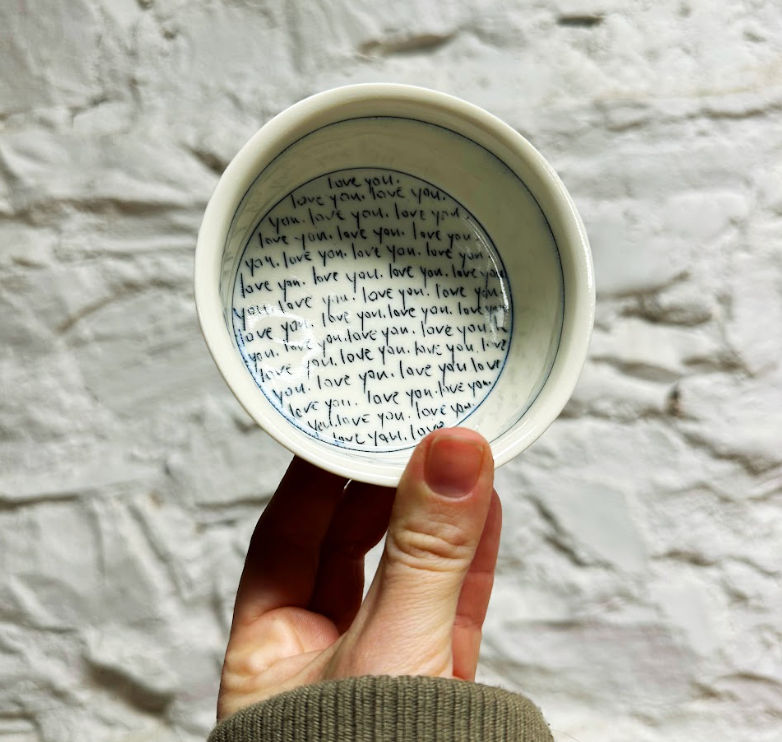 love you.
love you. love you.
you. love you. love you.
love you. love you. love you
you. love you. love you. love you
love you. love you. love you. love you
you. love you. love you. love you
love you. love you. love you. love you
you. love you. love you. love you.
love you. love you. love you. love you.
love you. love you. love you love
you. love you. love you. love you.
love you. love you. love you.
you. love you. love you.
love you. love